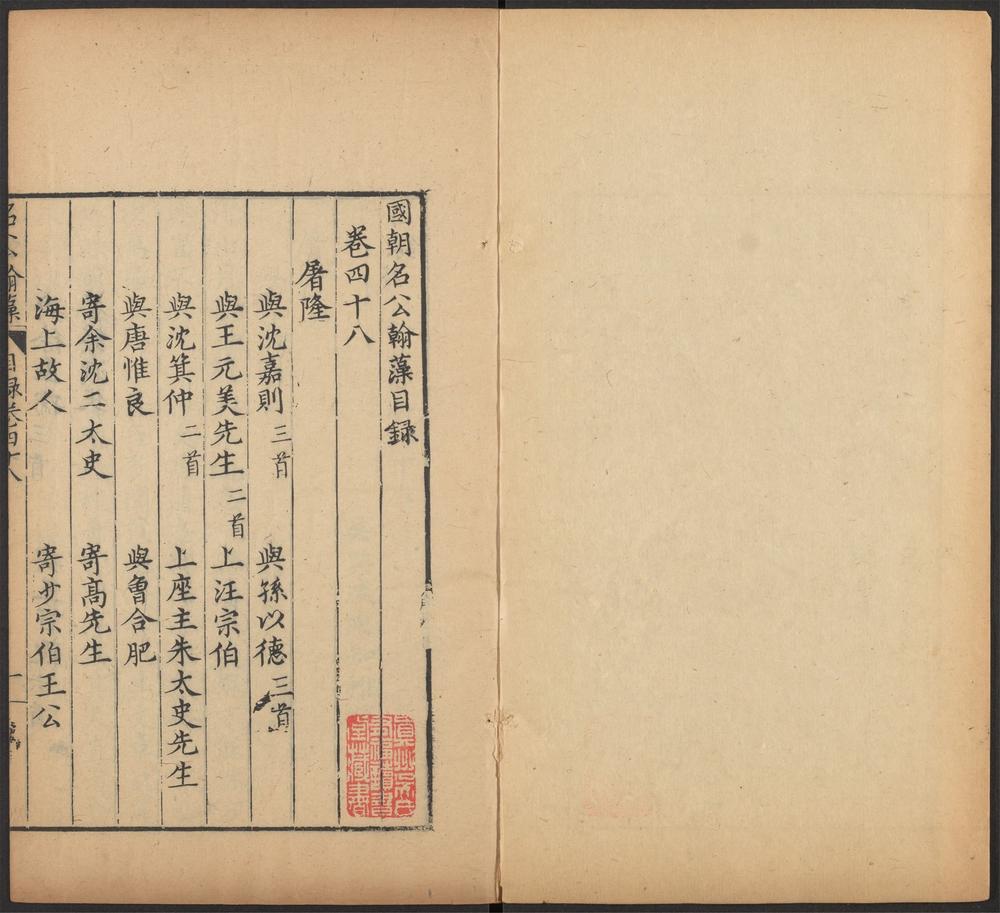 國朝名公翰藻目録
卷四十八
屠隆
與沈嘉則 三首 與孫以德 三首
與王元美先生 二首 上汪宗伯
與沈箕仲 二首 上座主朱太史先生
與唐惟良 與魯合肥
寄余沈二太史 寄高先生
海上故人 寄少宗伯王公
名公翰藻 目録卷四十八 一
真州吳氏
有福讀書
堂藏書